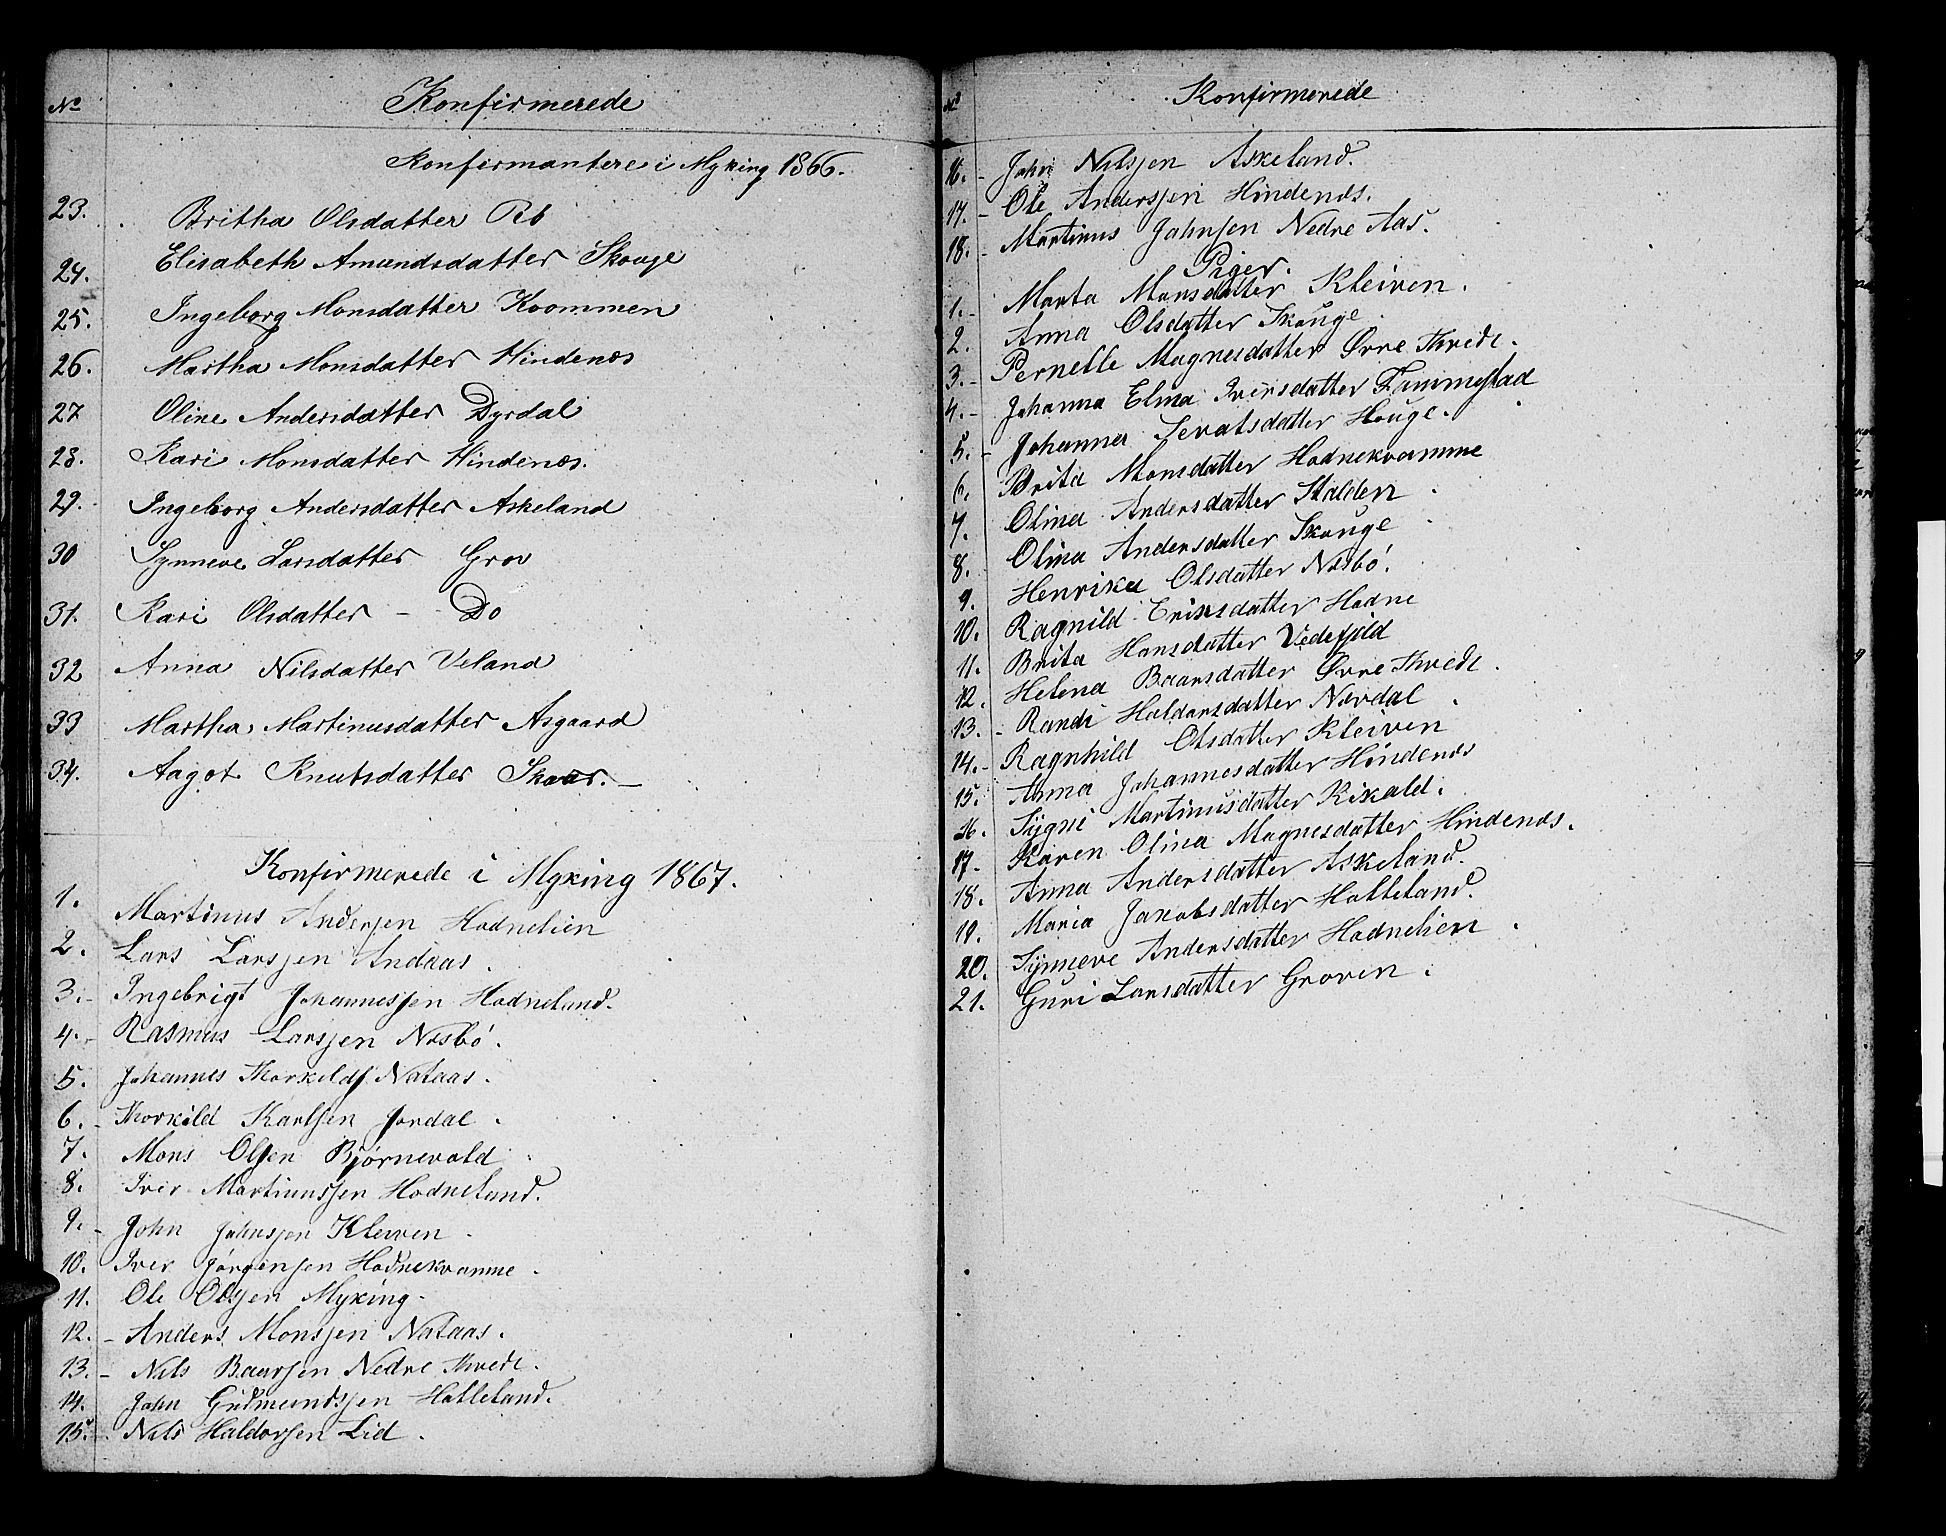 No Konfirmerede
Konfirmantere i Myking 1866.
23. Britha Olsdatter Rb
24. Elisabeth Amundsdatter Skouge
25. Ingeborg Monsdatter Kvammen
26. Martha Monsdatter Hindenæs
27 Oline Andersdatter Dyrdal
28. Kari Monsdatter Hindenæs.
29. Ingeborg Andersdatter Askeland
30 Synneve Larsdatter Grov
31. Kari Olsdatter - Do
32 Anna Nilsdatter Veland
33 Martha Martinusdatter Asgaard
34. Aagot Knutsdatter Skaar. -
Konfirmerede i Myking 1867.
1. Martinus Andersen Hodnelien
2. Lars Larsen Andaas.
3. Ingebrigt Johannessen Hodneland.
4. Rasmus Larssen Næsbó.
5. Johannes Thorkilds. Nataas.
6. Thorkild Karlsen Jordal.
7. Mons Olsen Bjørnevold
8. Iver Martinussen Hodneland.
9. John Johnssen Kleiven.
10. Iver Jørgensen Hodnekvamme.
11. Ole Olssen Myking.
12. Anders Monssen Nataas.
13. Nils Baarsen Nedre Thvedt.
14. John Gudmundssen Halleland.
15. Nils Haldorsen Lid.
No Konfirmerede
16. John Nilssen Askeland.
17. Ole Anderssen Hindenæs.
18. Martinus Johnsen Nedre Aas.
Piger.
1. Marta Monsdatter Kleiven.
2. Anna Olsdatter Skouge.
3. Pernelle Magnesdatter Øvre Thvedt.
4. Johanna Elina Iversdatter Fammestad
5. Johanna Sevatsdatter Houge.
6. Brita Monsdatter Hodnekvamme
7. Olina Andersdatter Stalden.
8. Olina Andersdatter Skouge
9. Henrika Olsdatter Næsbó.
10. Ragnild Eriksdatter Hodne
11. Brita Hansdatter Vedefjeld
12. Helena Baarsdatter Øvre Thvedt.
13. Randi Haldorsdatter Nordal.
14. Ragnhild Olsdatter Kleiven
15. Anna Johannesdatter Hindenæs
16. Sygni Martinusdatter Rikald.
17. Karen Olina Magnesdatter Hindenæs.
18. Anna Andersdatter Askeland.
19. Maria Jakobsdatter Halleland.
20. Synneve Andersdatter Hodnelien.
21. Guri Larsdatter Groven.